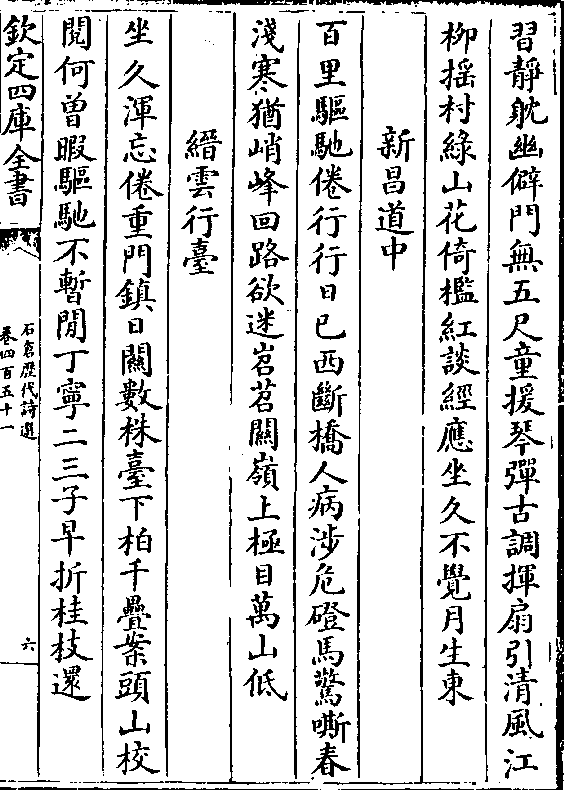 習靜躭幽僻門無五尺童援琴彈古調揮扇引清風江
柳揺村綠山花倚檻紅談經應坐久不覺月生東
新昌道中
百里驅馳倦行行日已西斷橋人病涉危磴馬驚嘶春
淺寒猶峭峰回路欲迷岧苕關嶺上極目萬山低
縉雲行臺
坐久渾忘倦重門鎮日關數株臺下柏千疊案頭山校
閱何曽暇驅馳不暫閒丁寧二三子早折桂枝還
欽定四庫全書
石倉歷代詩選
卷四百五十一
六